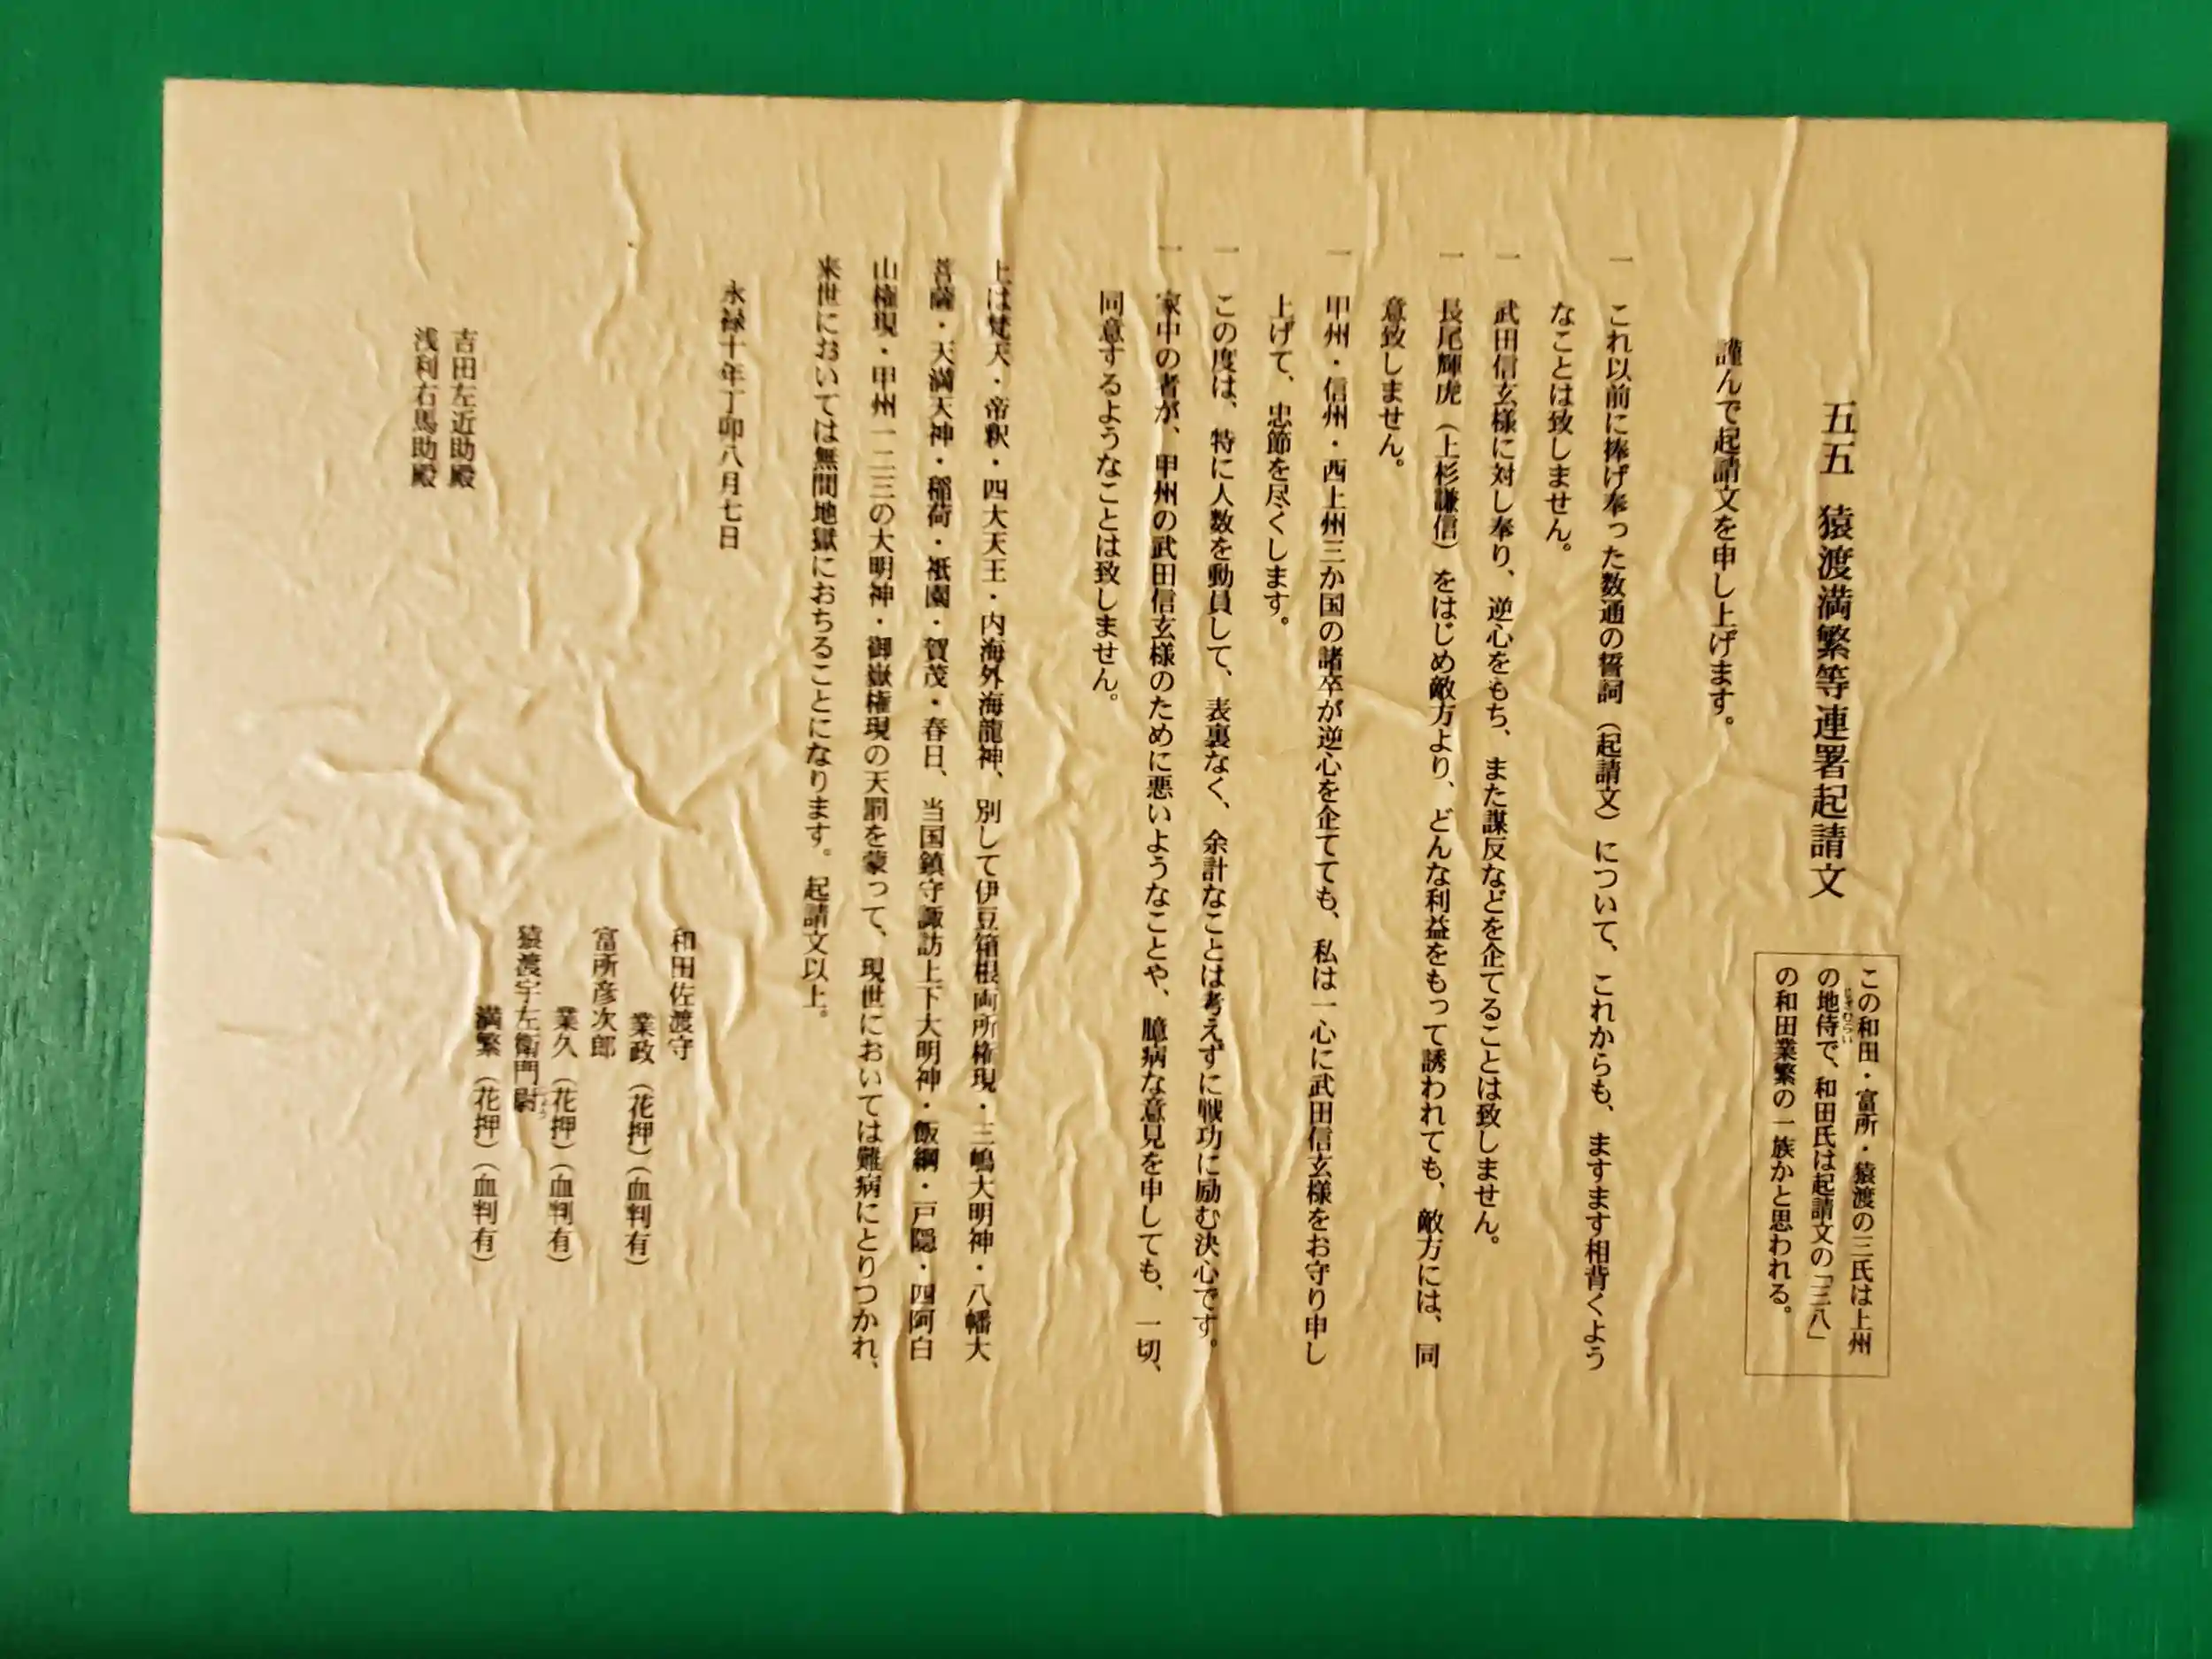 五五 猿渡満繁等連署起請文
この和田・富所・猿渡の三氏は上州
の地侍で、和田氏は起請文の「三八」
じざむらい
の和田業繁の一族かと思われる。
謹んで起請文を申し上げます。
一 これ以前に捧げ奉った数通の誓詞（起請文）について、これからも、ますます相背くよう
なことは致しません。
一 武田信玄様に対し奉り、逆心をもち、また謀反などを企てることは致しません。
一 長尾輝虎（上杉謙信）をはじめ敵方より、どんな利益をもって誘われても、敵方には、同
意致しません。
一 甲州・信州・西上州三か国の諸卒が逆心を企てても、私は一心に武田信玄様をお守り申し
上げて、忠節を尽くします。
一 この度は、特に人数を動員して、表裏なく、余計なことは考えずに戦功に励む決心です。
一 家中の者が、甲州の武田信玄様のために悪いようなことや、臆病な意見を申しても、一切、
同意するようなことは致しません。
上は梵天・帝釈・四大天王・内海外海龍神、別して伊豆箱根両所権現・三嶋大明神・八幡大
菩薩・天満天神・稲荷・祇園・賀茂・春日、当国鎮守諏訪上下大明神・飯綱・戸隠・四阿白
山権現・甲州一二三の大明神・御嶽権現の天罰を蒙って、現世においては難病にとりつかれ、
来世においては無間地獄におちることになります。起請文以上。
永禄十年丁卯八月七日
和田佐渡守
業政（花押）（血判有）
富所彦次郎
業久（花押）（血判有）
猿渡宇左衛門尉
満繁（花押）（血判有）
吉田左近助殿
浅利右馬助殿